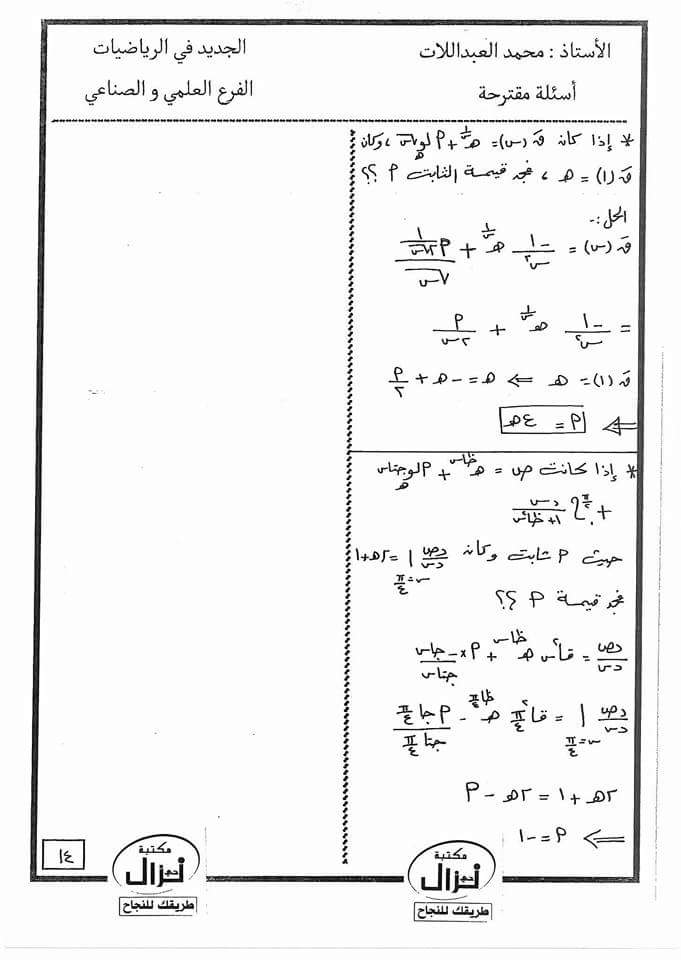 الأستاذ : محمد العبداللات
أسئلة مقترحة
الجديد في الرياضيات
الفرع العلمي و الصناعي
* إذا كان قَ(س) = هـ^(١/س) + م لو_هـ √س ، وكان
قَ(١) = هـ ، فجد قيمة الثابت م ؟؟
الحل :-
قَ(س) = -١/س٢ هـ^(١/س) + م (١/٢√س)/√س
= -١/س٢ هـ^(١/س) + م/٢س
قَ(١) = هـ ⇐ هـ = -هـ + م/٢
⇐ م = ٤هـ
* إذا كانت ص = هـ^ظاس + م لو_هـ جتاس
+ ∫ دس/(١+ظا٢س)
حيث م ثابت وكان دص/دس | س=π/٤ = ٢هـ+١
فجد قيمة م ؟؟
دص/دس = قا٢س هـ^ظاس + م × -جاس/جتاس
دص/دس | س=π/٤ = قا٢ π/٤ هـ^ظا π/٤ - م جا π/٤ / جتا π/٤
٢هـ + ١ = ٢هـ - م
⇐ م = -١
١٤
مكتبة
نزال
طريقك للنجاح
مكتبة
نزال
طريقك للنجاح